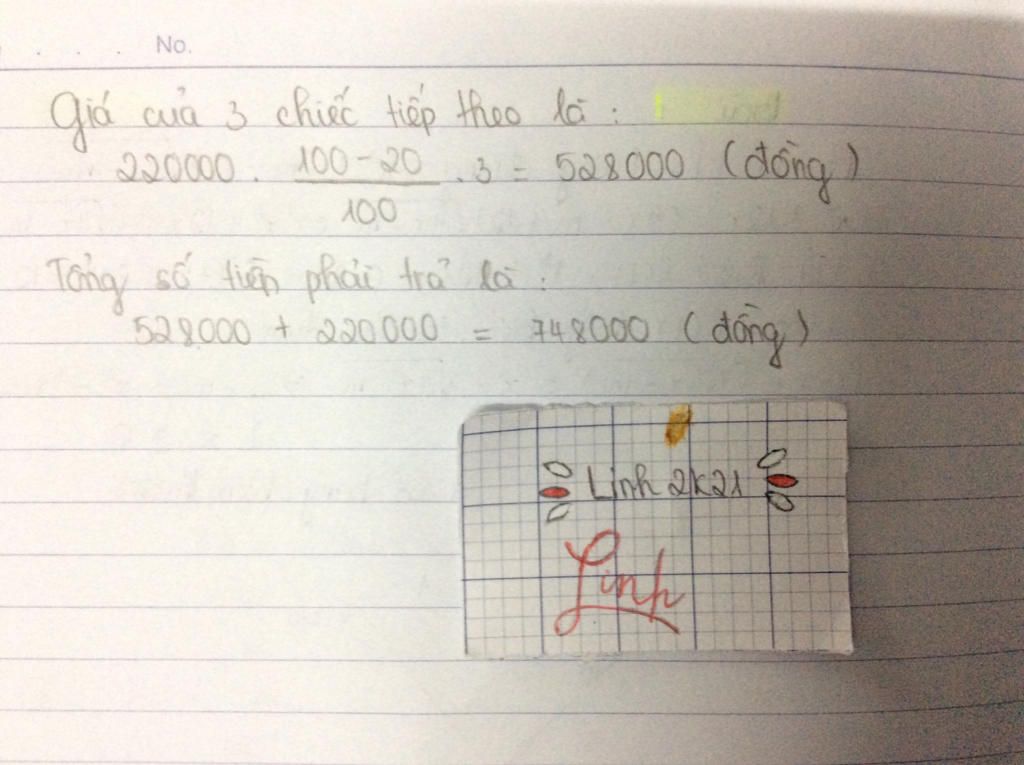 No.
Giá của 3 chiếc tiếp theo là :
220000 . (100 - 20)/100 . 3 = 528000 (đồng)
Tổng số tiền phải trả là :
528000 + 220000 = 748000 (đồng)
Linh 2k21
Linh